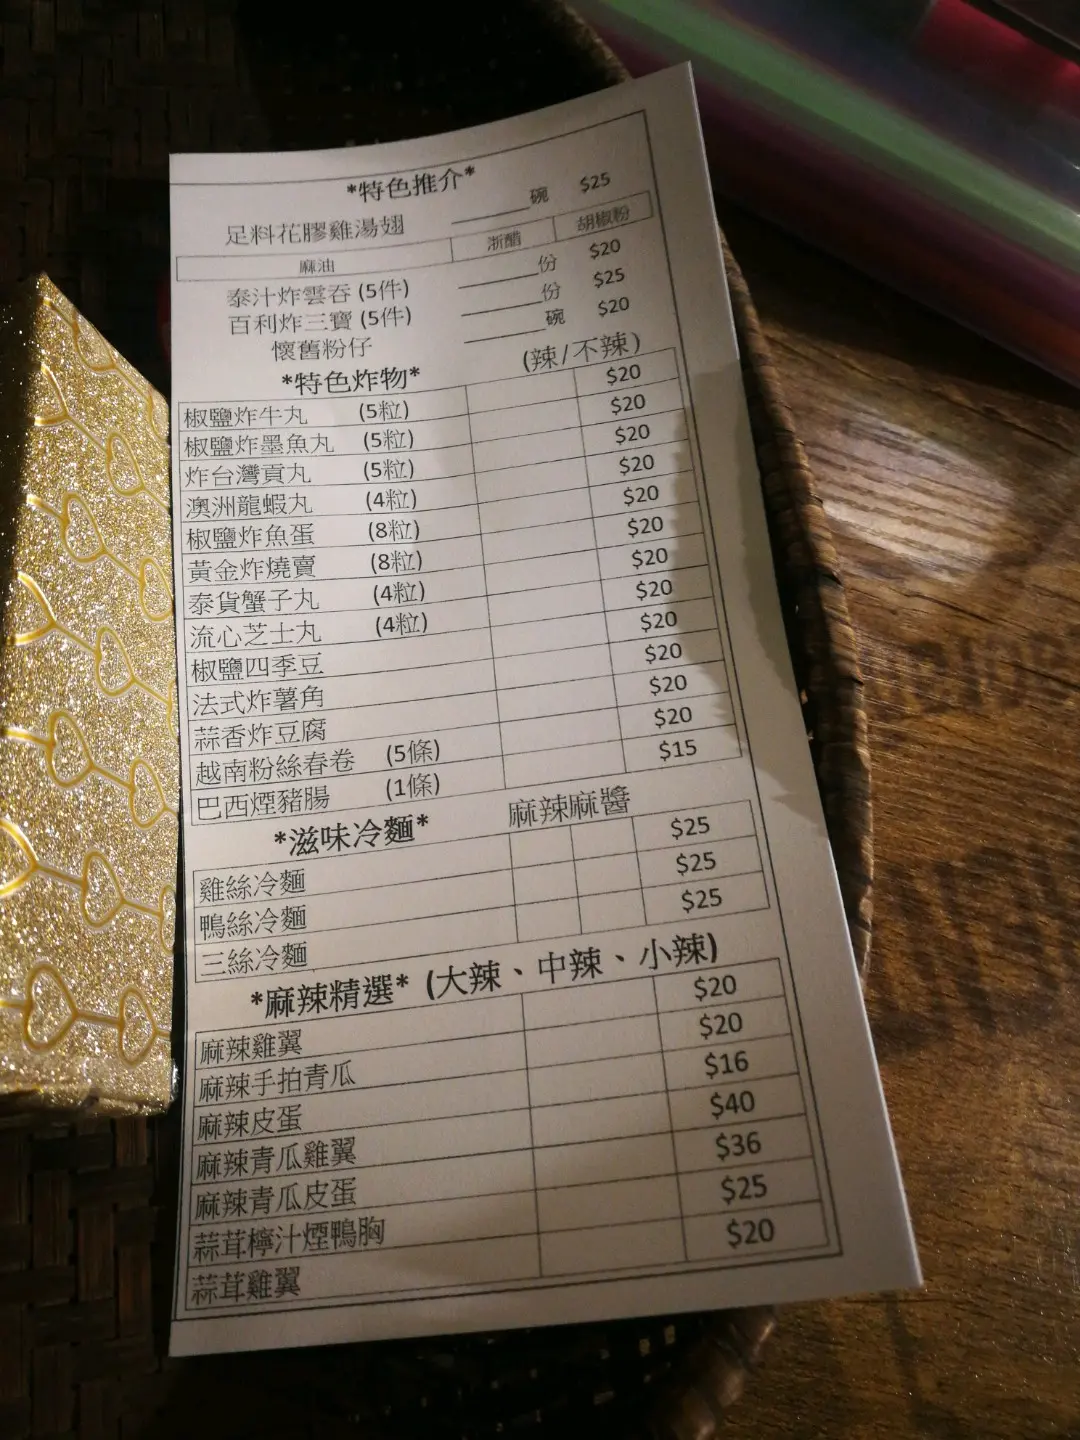 *特色推介*
足料花膠雞湯翅 ______碗 $25
麻油 浙醋 胡椒粉
泰汁炸雲吞 (5件) ______份 $20
百利炸三寶 (5件) ______份 $25
懷舊粉仔 ______碗 $20
*特色炸物* (辣/不辣)
椒鹽炸牛丸 (5粒) $20
椒鹽炸墨魚丸 (5粒) $20
炸台灣貢丸 (5粒) $20
澳洲龍蝦丸 (4粒) $20
椒鹽炸魚蛋 (8粒) $20
黃金炸燒賣 (8粒) $20
泰貨蟹子丸 (4粒) $20
流心芝士丸 (4粒) $20
椒鹽四季豆 $20
法式炸薯角 $20
蒜香炸豆腐 $20
越南粉絲春卷 (5條) $20
巴西煙豬腸 (1條) $15
*滋味冷麵* 麻辣麻醬
雞絲冷麵 $25
鴨絲冷麵 $25
三絲冷麵 $25
*麻辣精選* (大辣、中辣、小辣)
麻辣雞翼 $20
麻辣手拍青瓜 $20
麻辣皮蛋 $16
麻辣青瓜雞翼 $40
麻辣青瓜皮蛋 $36
蒜茸檸汁煙鴨胸 $25
蒜茸雞翼 $20